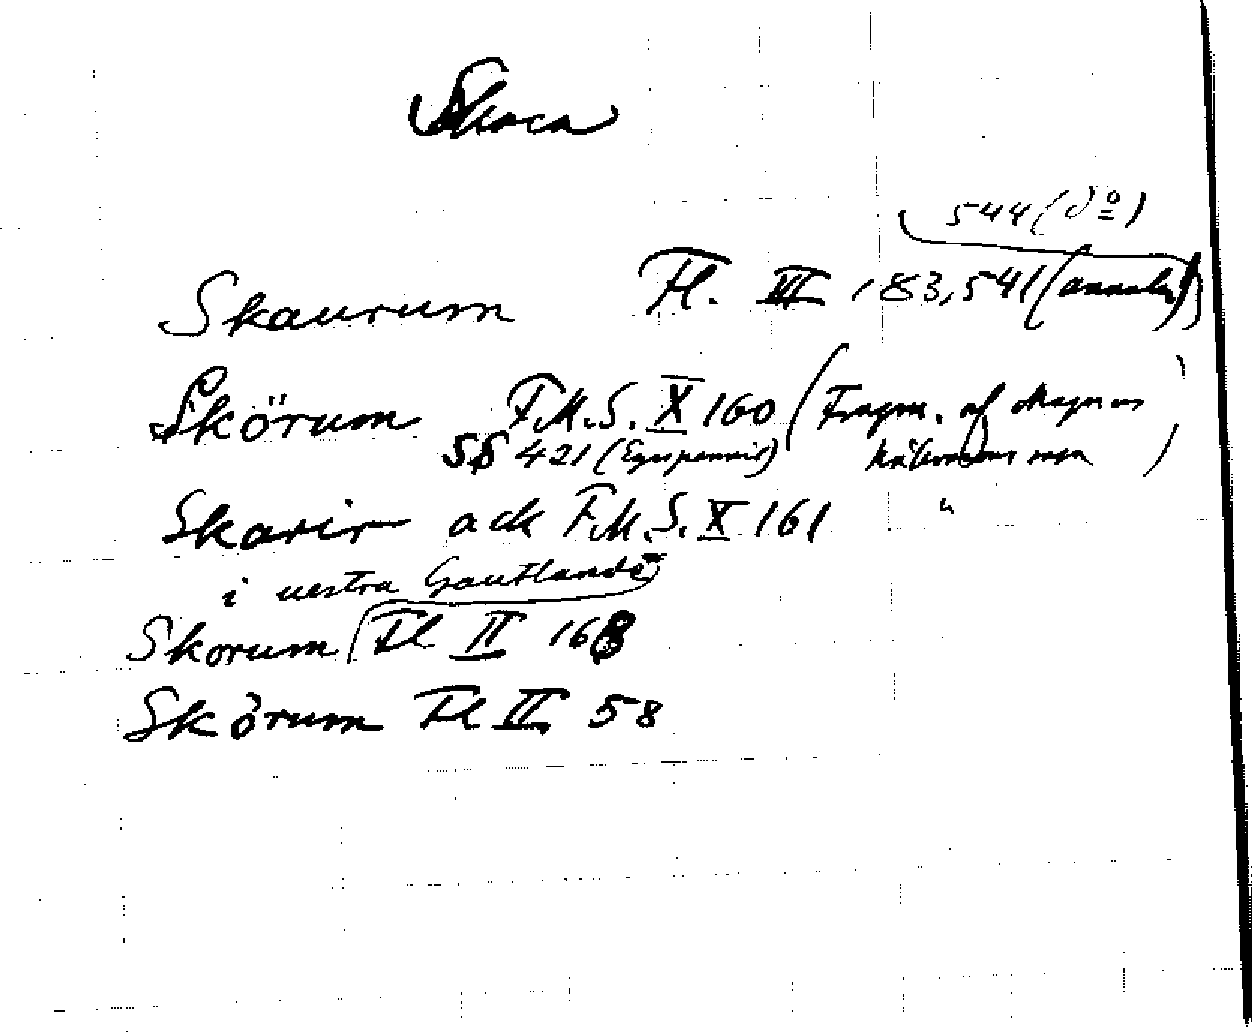 Skara
544 (do)
Skaurum Fl. III 183, 541 (annaler)
Skörum F.M.S. X 160 (Fragm. af Magnus
SS 421 (Egerspennir) Hákonars saga )
Skarir ack F.M.S. X 161 "
i vestra Gautlandi
Skorum Fl II 168
Skörum Fl II 58